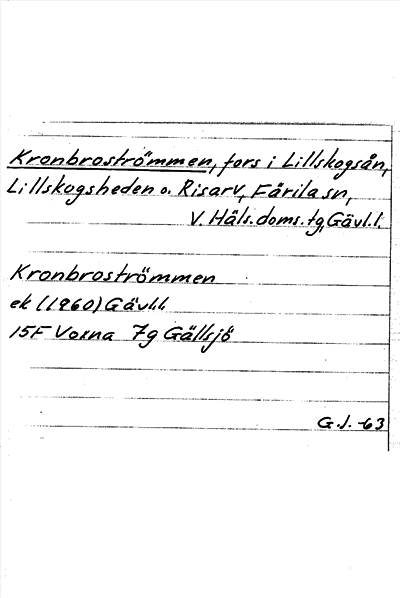 Kronbroströmmen, fors i Lillskogsån,
Lillskogsheden o. Risarv, Färila sn,
V. Häls. doms. tg, Gävl.l.
Kronbroströmmen
ek (1960) Gävl.l.
15F Voxna 7g Gällsjö
G.J. -63